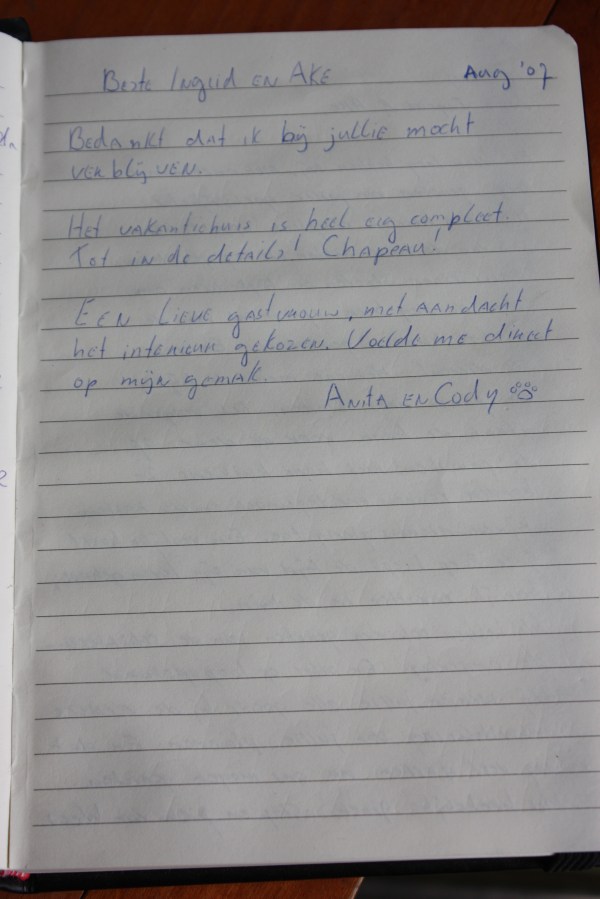 Beste Ingrid en Ake
Aug '07
Bedankt dat ik bij jullie mocht
verblijven.
Het vakantiehuis is heel erg compleet.
Tot in de details! Chapeau!
Een lieve gastvrouw, met aandacht
het interieur gekozen. Voelde me direct
op mijn gemak.
Anita en Cody